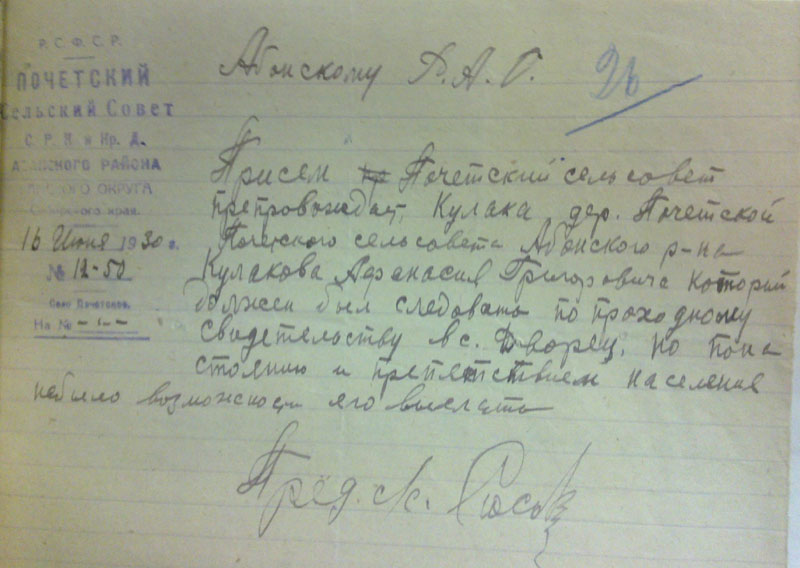 Р.С.Ф.С.Р.
ПОЧЕТСКИЙ
Сельский Совет
С. Р. К. и Кр. Д.
АБАНСКОГО РАЙОНА
КАНСКОГО ОКРУГА
Сибирского края.
16 Июня 1930 г.
№ 12-50
Село Почетское.
На № -"-
Абонскому Р.А.О.
26
Присем Почетский сельсовет
препровождает Кулака дер. Почетской
Почетского сельсовета Абонского р-на
Кулакова Афанасия Григоровича который
должен был следовать по проходному
свидетельству в с. Дворец, но по на
стоянию и препятствием населения
небыло возможности его выслать
Пред. с/с.